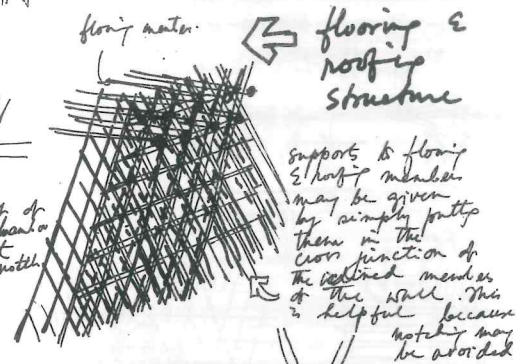 flooring member.
flooring &
roofing
structure
supports to flooring
& roofing members
may be given
by simply putting
them in the
cross junction of
the inclined members
of the wall. This
is helpful because
notching may
be avoided
of
notch